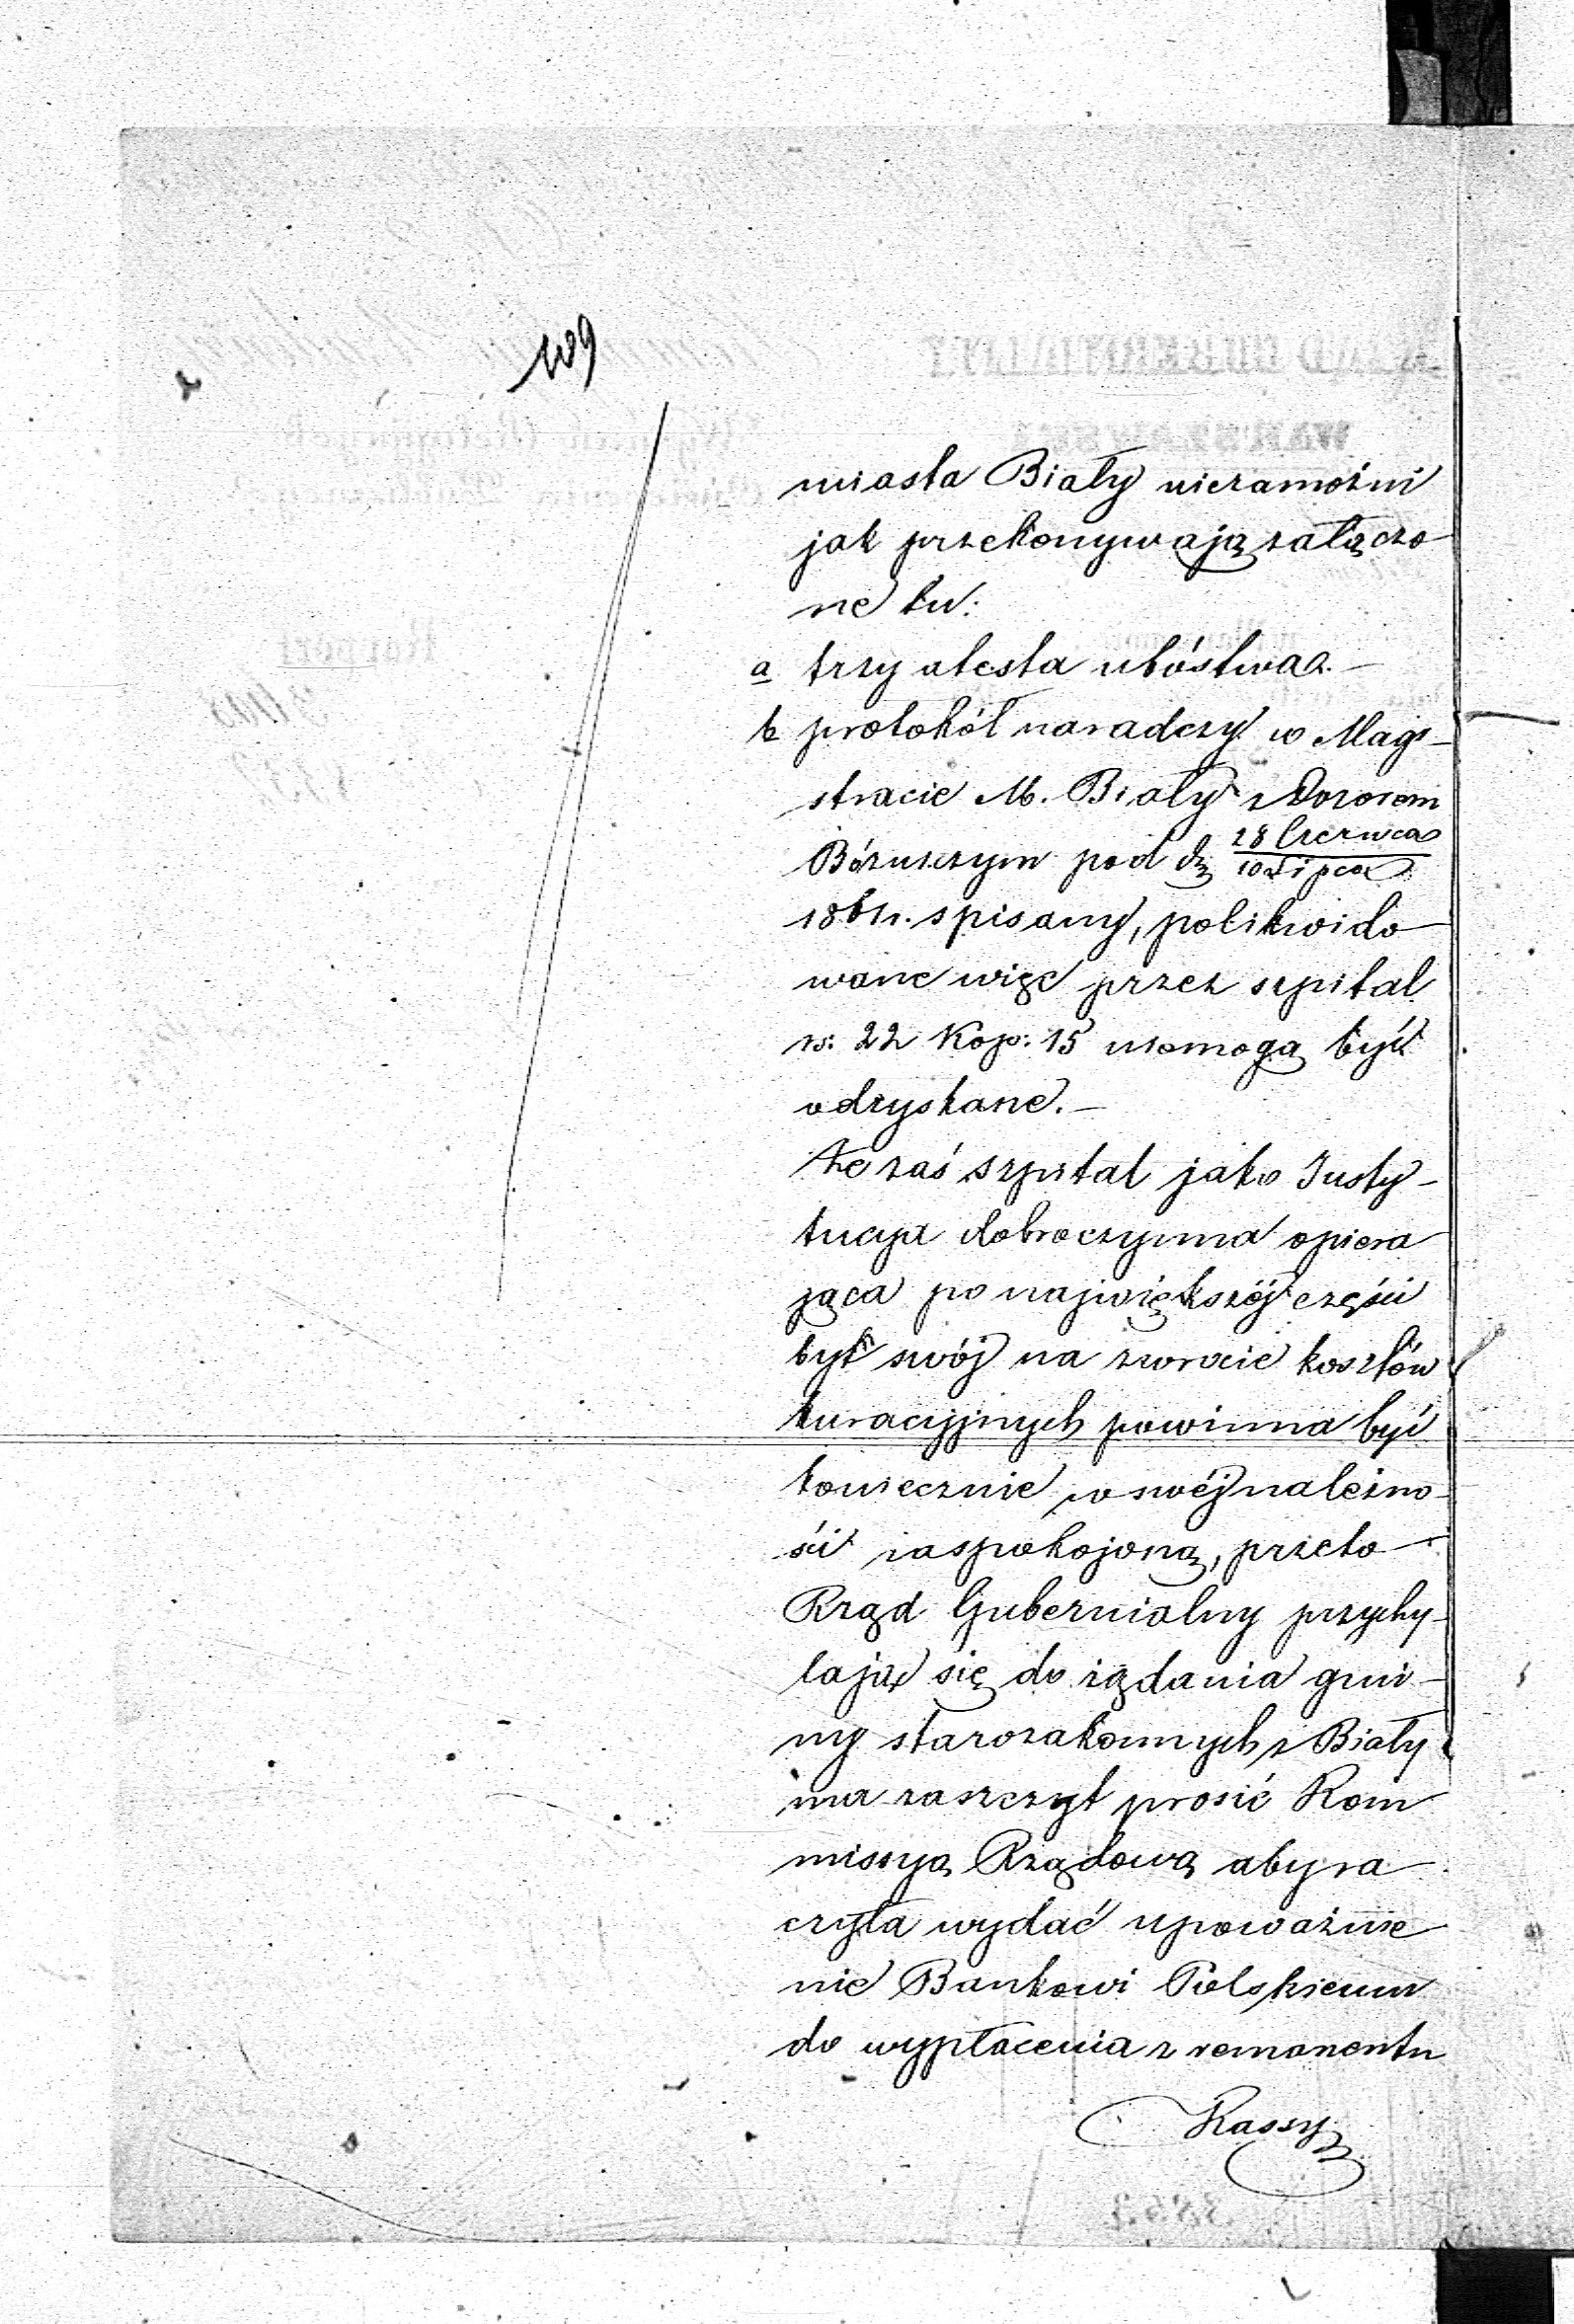 109
miasta Biały niezamożni
jak przekonywają załączo
ne tu:
a trzy atesta ubóstwa
b protokół naradczy w Magi-
stracie M. Biały z Dozorem
Bóżniczym pod d 28 Czerwca
10 Lipca
1861 r. spisany, polikwido
wane więc przez szpital
rs: 22 Kop: 15 niemogą być
odzyskane.—
Że zaś szpital jako Insty-
tucya dobroczynna opiera
jąca po największéj części
byt swój na zwrocie kosztów
kuracyjnych powinna być
koniecznie w swéj należno-
ści zaspokojoną, przeto
Rząd Gubernialny przychy-
lając się do żądania gmi-
ny starozakonnych z Biały
ma zaszczyt prosić Kom
missyą Rządową aby ra
czyła wydać upoważnie
nie Bankowi Polskiemu
do wypłacenia z remanentu
Kassy